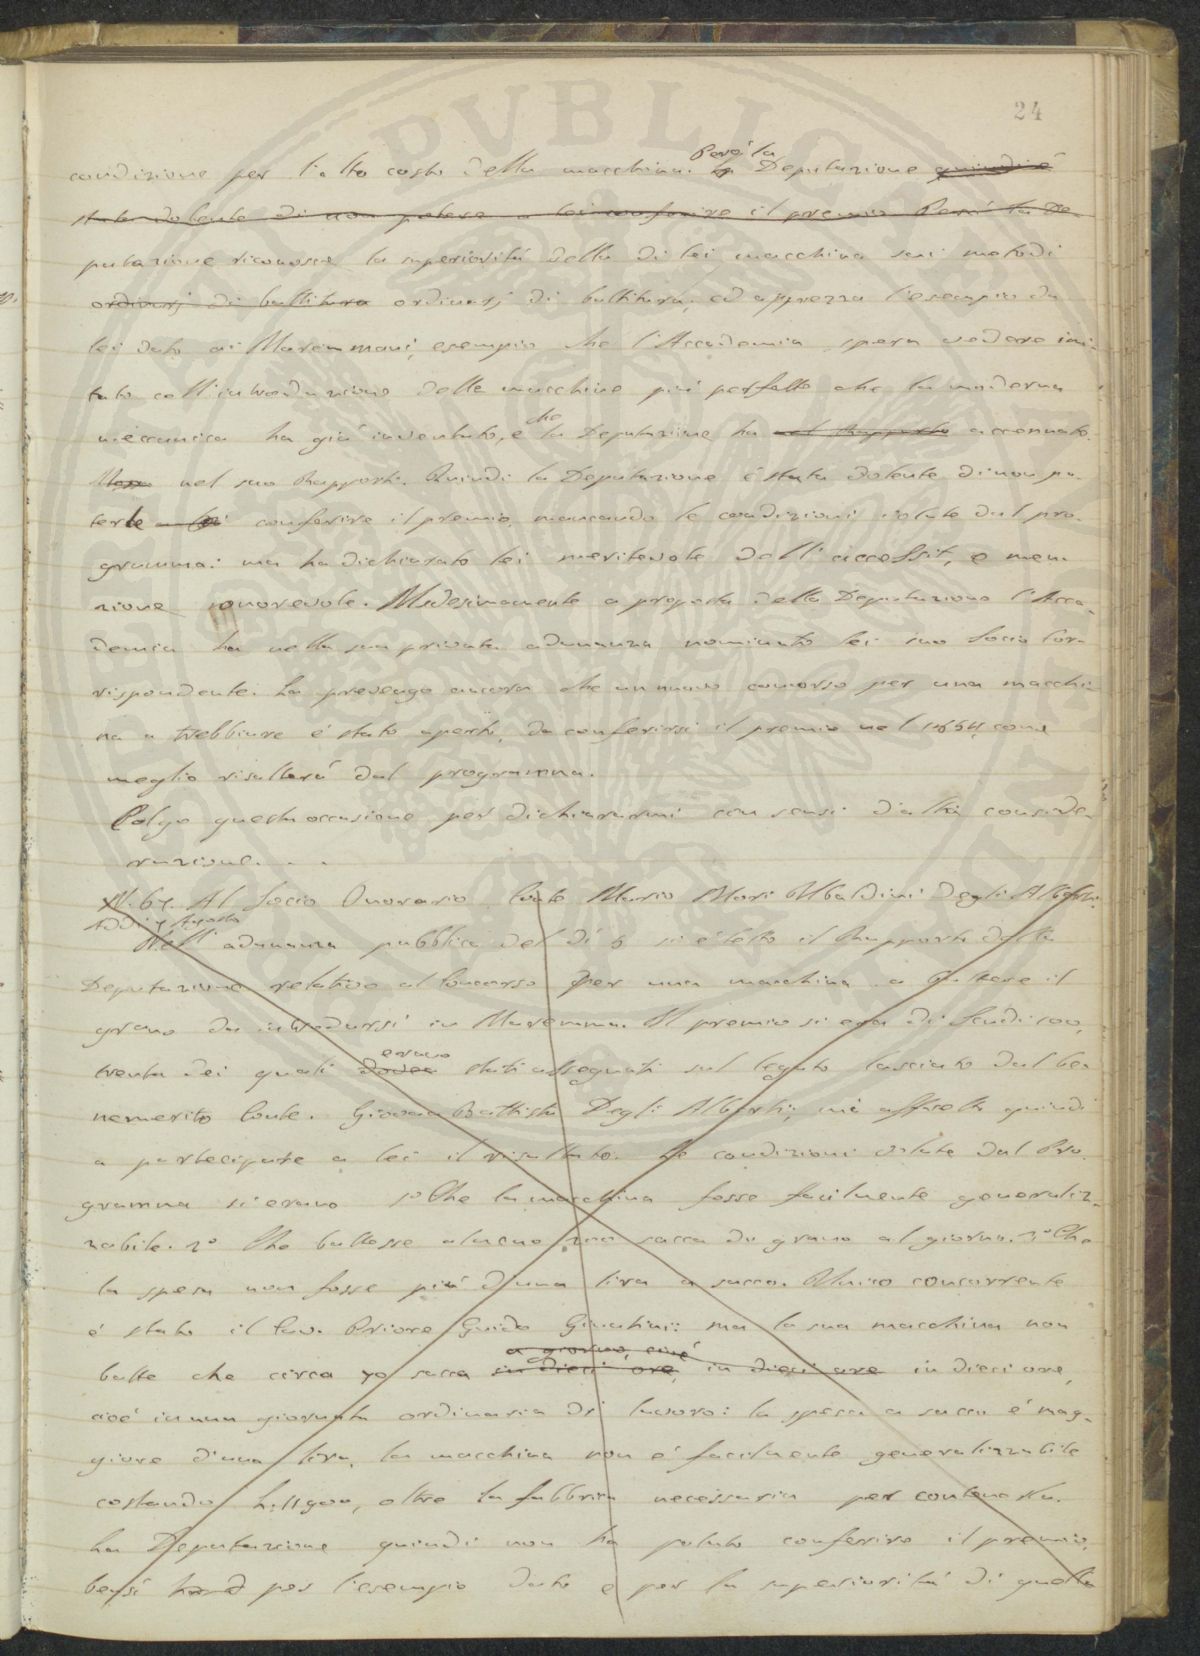 24
condizione per l'alto costo della macchina. Però la Deputazione quindi è
stata dolente di non potere a lei conferire il premio Però la De-
putazione riconosce la superiorità della di lei macchina sui metodi
ordinarj di battitura ordinarj di battitura, ed apprezza l'esempio da
lei dato ai Maremmani, esempio che l'Accademia spera vedere imi-
tato coll'introduzione delle macchine più perfette che la moderna
meccanica ha già inventato, e che la Deputazione ha nel Rapporto accennato
nel suo Rapporto. Quindi la Deputazione è stata dolente di non po-
terle a lei conferire il premio, mancando le condizioni volute dal pro-
gramma: ma ha dichiarato lei meritevole dell'accessit, e men
zione onorevole. Medesimamente a proposta della Deputazione l'Acca-
demia ha nella sua privata adunanza nominato lei suo Socio Cor-
rispondente. La prevengo ancora che un nuovo concorso per una macchi-
na a trebbiare è stato aperto, da conferirsi il premio nel 1854, come
meglio risulterà dal programma.
Colgo questa occasione per dichiararmi con sensi d'alta conside-
razione. . .
N. 67. Al Socio Onorario Conte Mario Mori Ubaldini Degli Alberti.
Addì 7 Agosto
Nell'adunanza pubblica del dì 6 si è letto il Rapporto della
Deputazione relativo al Concorso per una macchina a battere il
grano da introdursi in Maremma. Il premio si era di scudi 100,
trenta dei quali erano stati assegnati sul legato lasciato dal be-
nemerito Conte Giovan Battista Degli Alberti; mi affretto quindi
a partecipare a lei il risultato. Le condizioni volute dal Pro-
gramma si erano 1° Che la macchina fosse facilmente generaliz-
zabile. 2° Che battesse almeno 200 sacca di grano al giorno. 3° Che
la spesa non fosse più d'una lira a sacco. Unico concorrente
è stato il Cav. Priore Guido Giuntini: ma la sua macchina non
a giorno, cioè
batte che circa 70 sacca in dieci ore, in dieci ore in dieci ore,
cioè in una giornata ordinaria di lavoro: la spesa a sacco è mag-
giore d'una lira, la macchina non è facilmente generalizzabile
costando oltre la fabbrica necessaria per contenerla.
La Deputazione quindi non ha potuto conferire il premio,
bensì per l'esempio dato e per la superiorità di quella